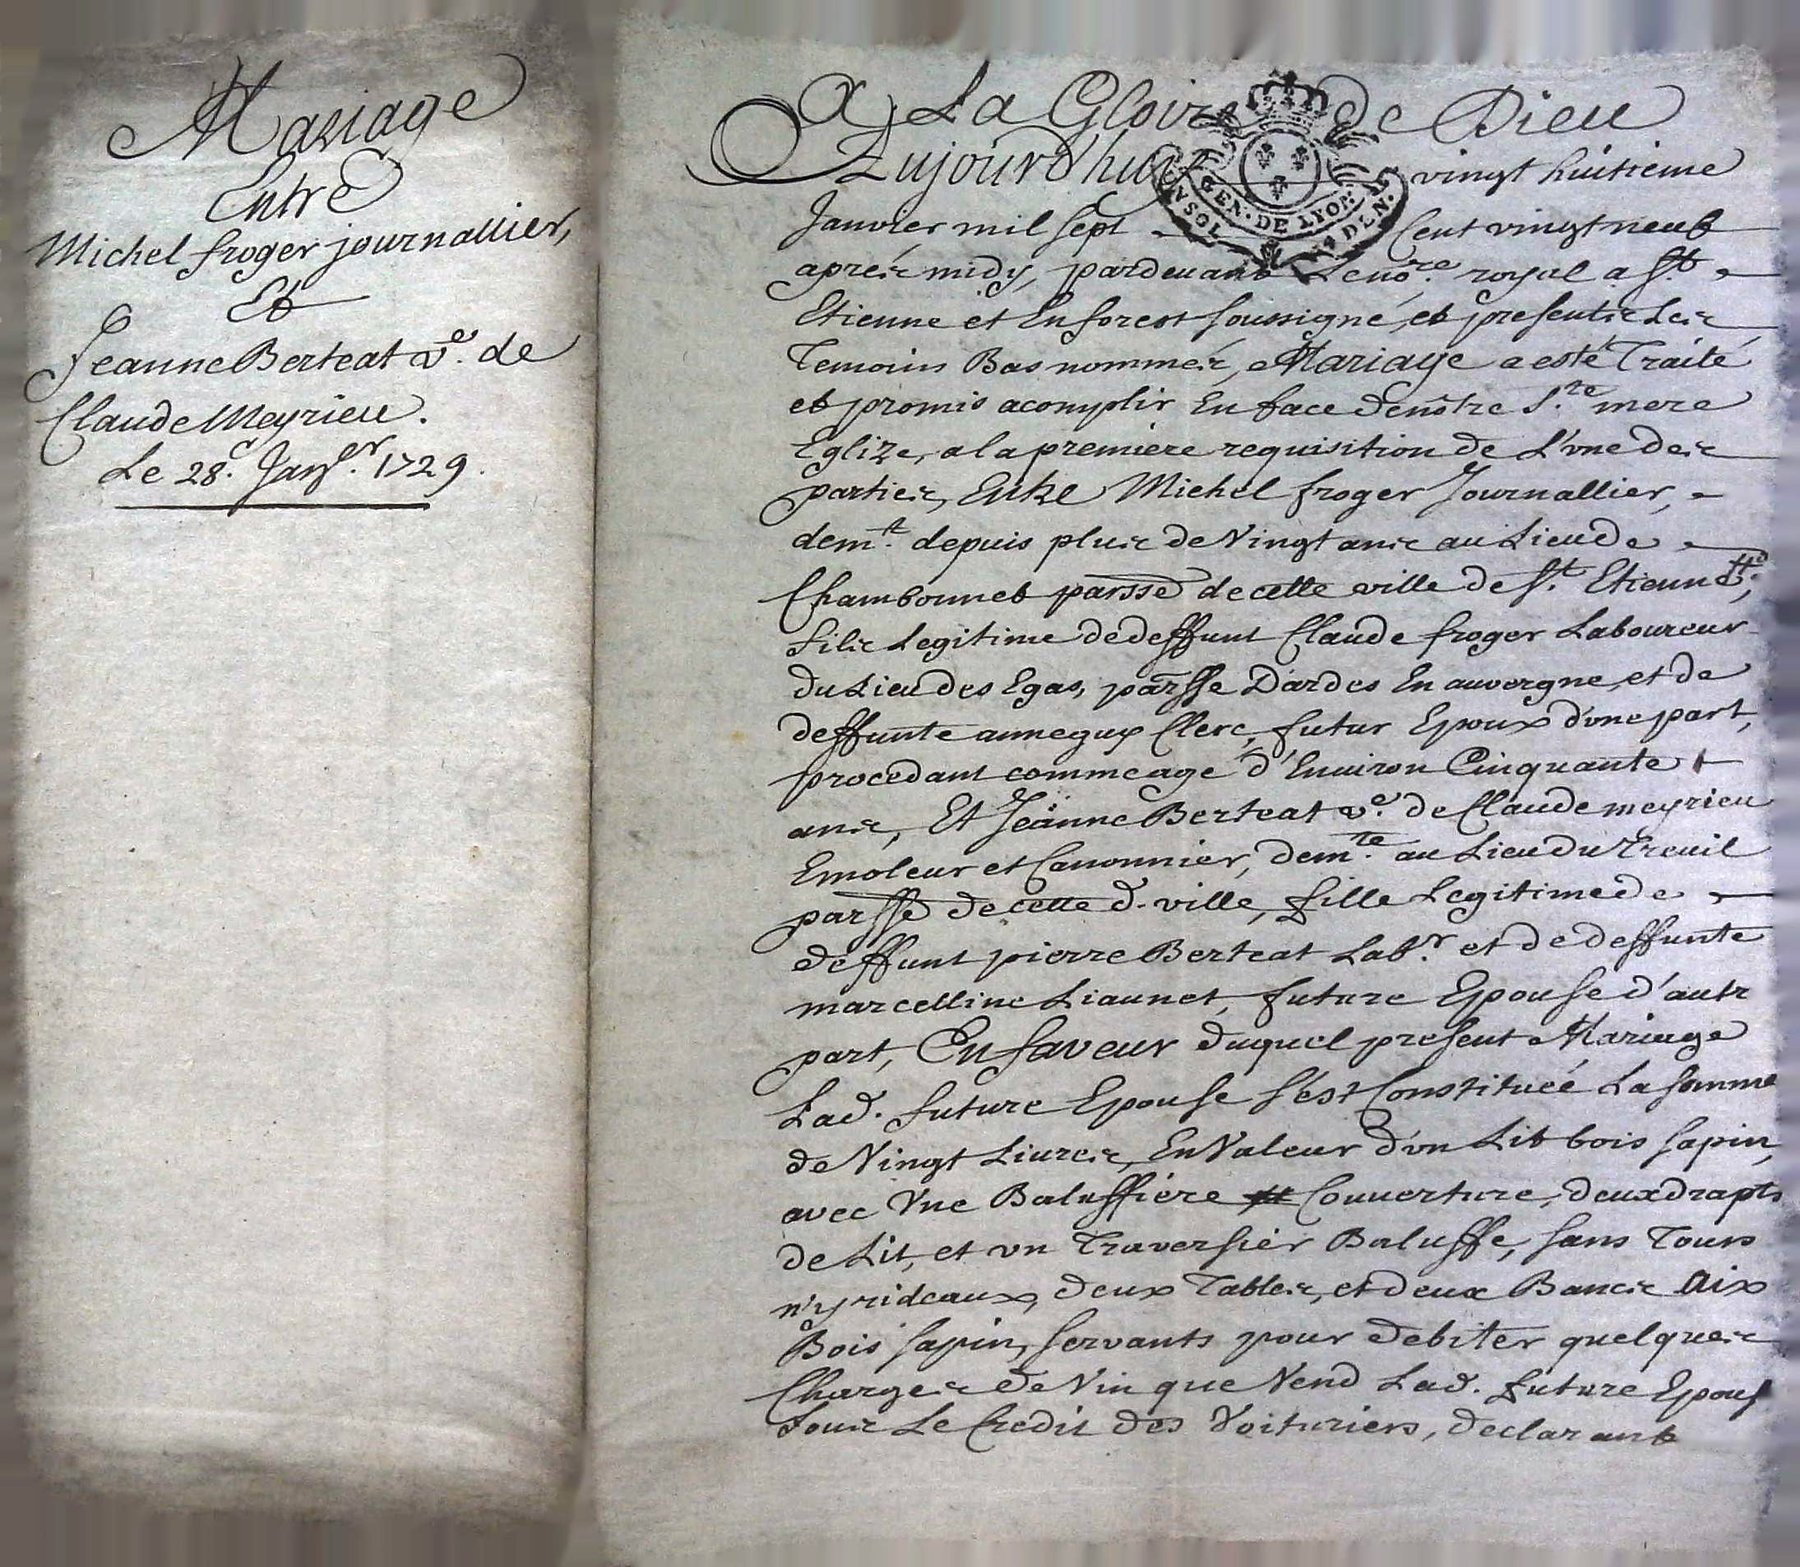 Mariage
Entre
Michel froger journallier,
Et
Jeanne Berteat ve. de
Claude Meyrieu.
Le 28e. Janr. 1729.
A La Gloire de Dieu
Aujourd'huy vingt huitieme
Janvier mil sept Cent vingt neuf
apres midy, pardevant Le nore. royal a St.
Etienne et En forest soussigné, et presents Les
Temoins Bas nommes, Mariage a esté Traité
et promis acomplir En face de nôtre Ste mere
Eglize, a la premiere requisition de L'une des
parties, Entre Michel froger Journallier,
demt. depuis plus de Vingt ans au Lieu de
Chambonnet parsse de cette ville de St. Etienne,
fils Legitime de deffunt Claude froger Laboureur
du Lieu des Egas, parsse D'ardes En auvergne, et de
deffunte anne guy Clerc, futur Epoux d'une part,
procedant comme agé d'Enuiron Cinquante
ans, Et Jeanne Berteat ve. de Claude meyrieu
Emoleur et Canonnier, demte. au Lieu du Treuil
parsse de cette d. ville, fille Legitime de
deffunt pierre Berteat Labr. et de deffunte
marcelline Liaunet, future Epouse d'autr
part, En faveur duquel present Mariage
Lad. future Epouse s'est Constituée La somme
de Vingt Liures, En Valeur d'un Lit bois sapin,
avec Vne Baluffiere Couverture, deux drapts
de Lit, et vn Traversier Baluffe, sans Tours
n'y rideaux, deux Tables, et deux Bancs Aix
Bois sapin, servants pour debiter quelques
Charges de Vin que Vend Lad. future Epous
sous Le Credit des Voituriers, declarant
GEN. DE LYON